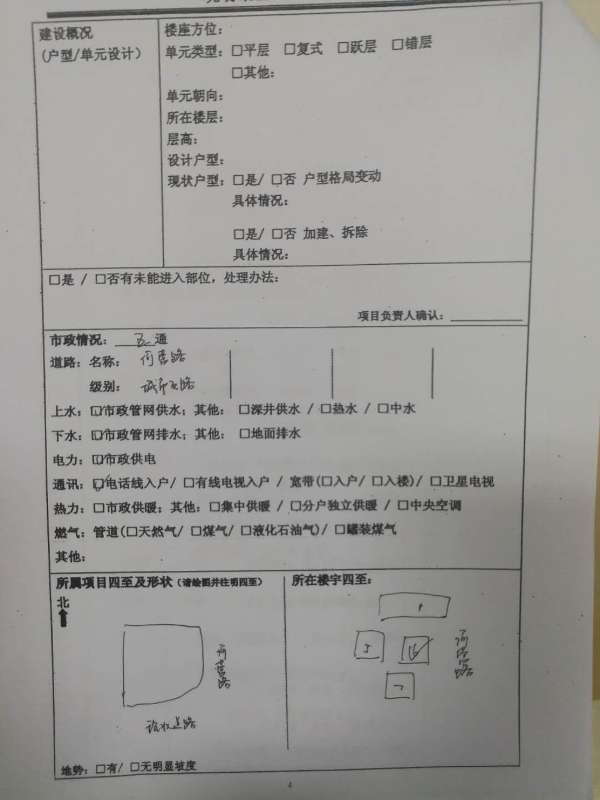 建设概况
(户型/单元设计)
楼座方位：
单元类型：□平层 □复式 □跃层 □错层
□其他：
单元朝向：
所在楼层：
层高：
设计户型：
现状户型：□是/ □否 户型格局变动
具体情况：
□是/ □否 加建、拆除
具体情况：
□是 / □否有未能进入部位，处理办法：
项目负责人确认：
市政情况： 五 通
道路：名称： 何营路
级别： 城市支路
上水：☑市政管网供水；其他： □深井供水 / □热水 / □中水
下水：☑市政管网排水；其他： □地面排水
电力：☑市政供电
通讯：☑电话线入户/ □有线电视入户 / 宽带(□入户/ □入楼)/ □卫星电视
热力：□市政供暖；其他：□集中供暖 / □分户独立供暖 / □中央空调
燃气：管道(□天然气/ □煤气/ □液化石油气)/ □罐装煤气
其他：
所属项目四至及形状（请绘图并注明四至）
北
何营路
所在楼宇四至：
5
何营路
7
地势：□有/ □无明显坡度
4